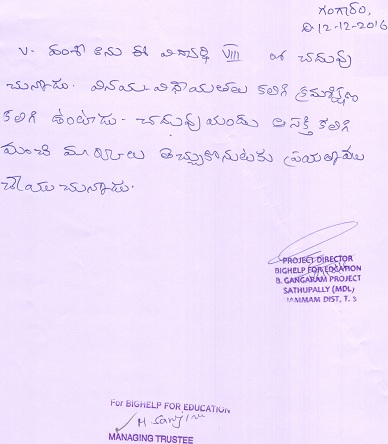 గంగారం,
ది 12-12-2016
V. వంశీ అను ఈ విద్యార్థి VIII లో చదువు
చున్నాడు. వినయ విధేయతలు కలిగి క్రమశిక్షణ
కలిగి ఉంటాడు. చదువుయందు ఆసక్తి కలిగి
మంచి మార్కులు తెచ్చుకొనుటకు ప్రయత్నము
చేయుచున్నాడు.
PROJECT DIRECTOR
BIGHELP FOR EDCATION
B. GANGARAM PROJECT
SATHUPALLY (MDL)
HAMMAM DIST, T. S
For BIGHELP FOR EDUCATION
MANAGING TRUSTEE